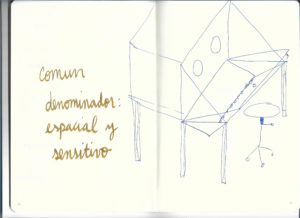 comun
denominador:
espacial y
sensitivo